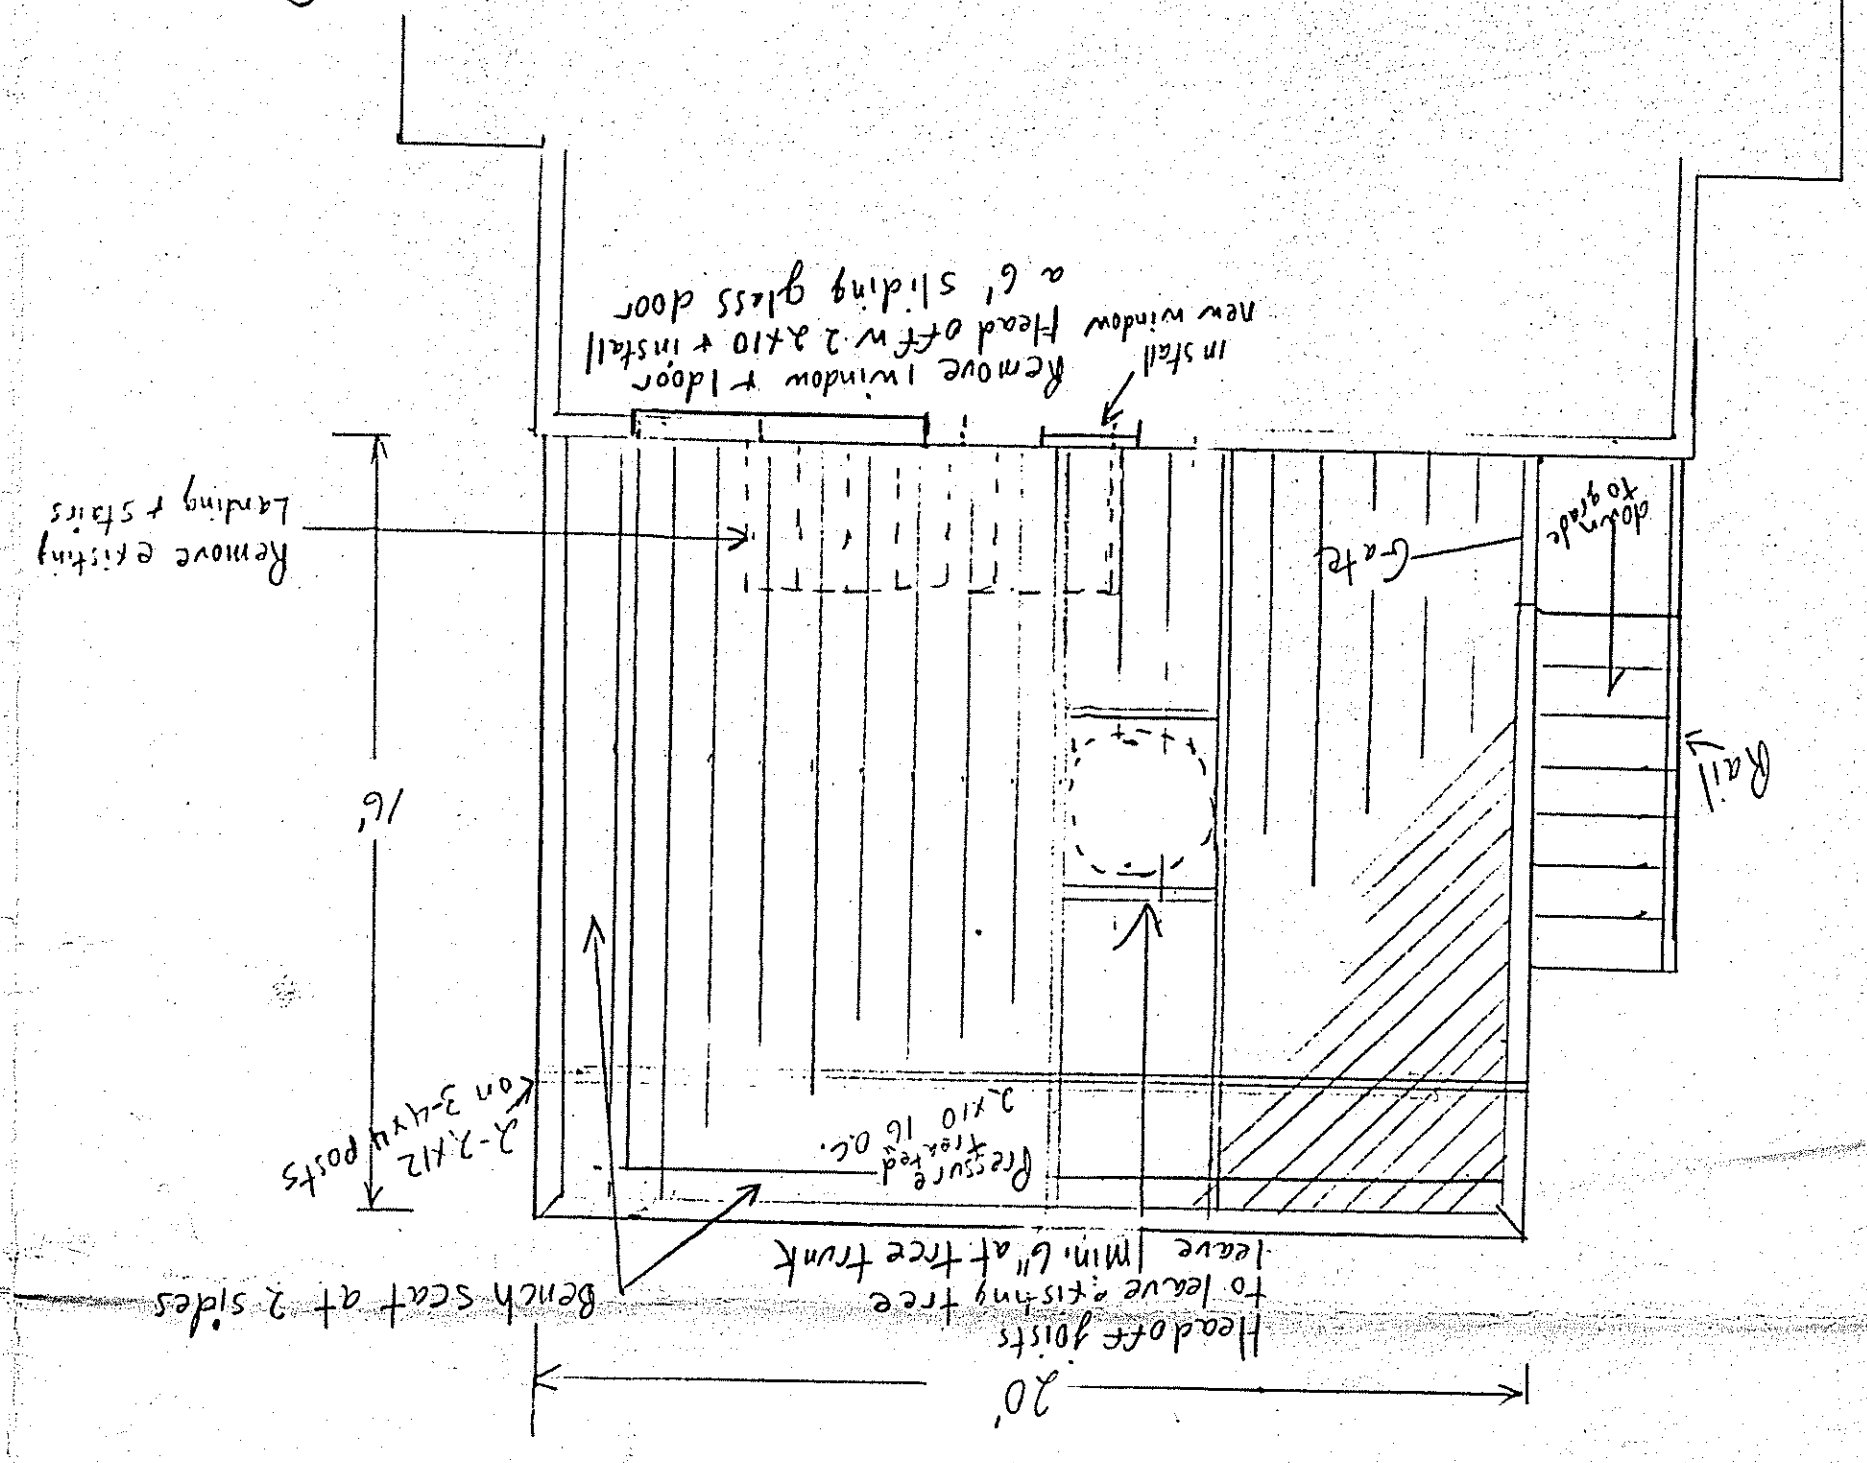 20'
Head off joists
to leave existing tree
leave min. 6" at tree trunk
Bench seat at 2 sides
2-2x12
on 3-4x4 posts
Pressure
treated
2x10 16" O.C.
Rail
16'
Gate
down
to grade
Remove existing
Landing + stairs
install
new window
Remove 1 window + 1 door
Head off w. 2 2x10 + install
a 6' sliding glass door